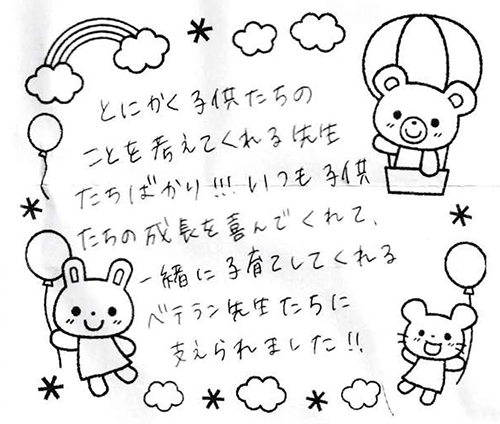 とにかく子供たちの
ことを考えてくれる先生
たちばかり!!!いつも子供
たちの成長を喜んでくれて、
一緒に子育てしてくれる
ベテラン先生たちに
支えられました!!